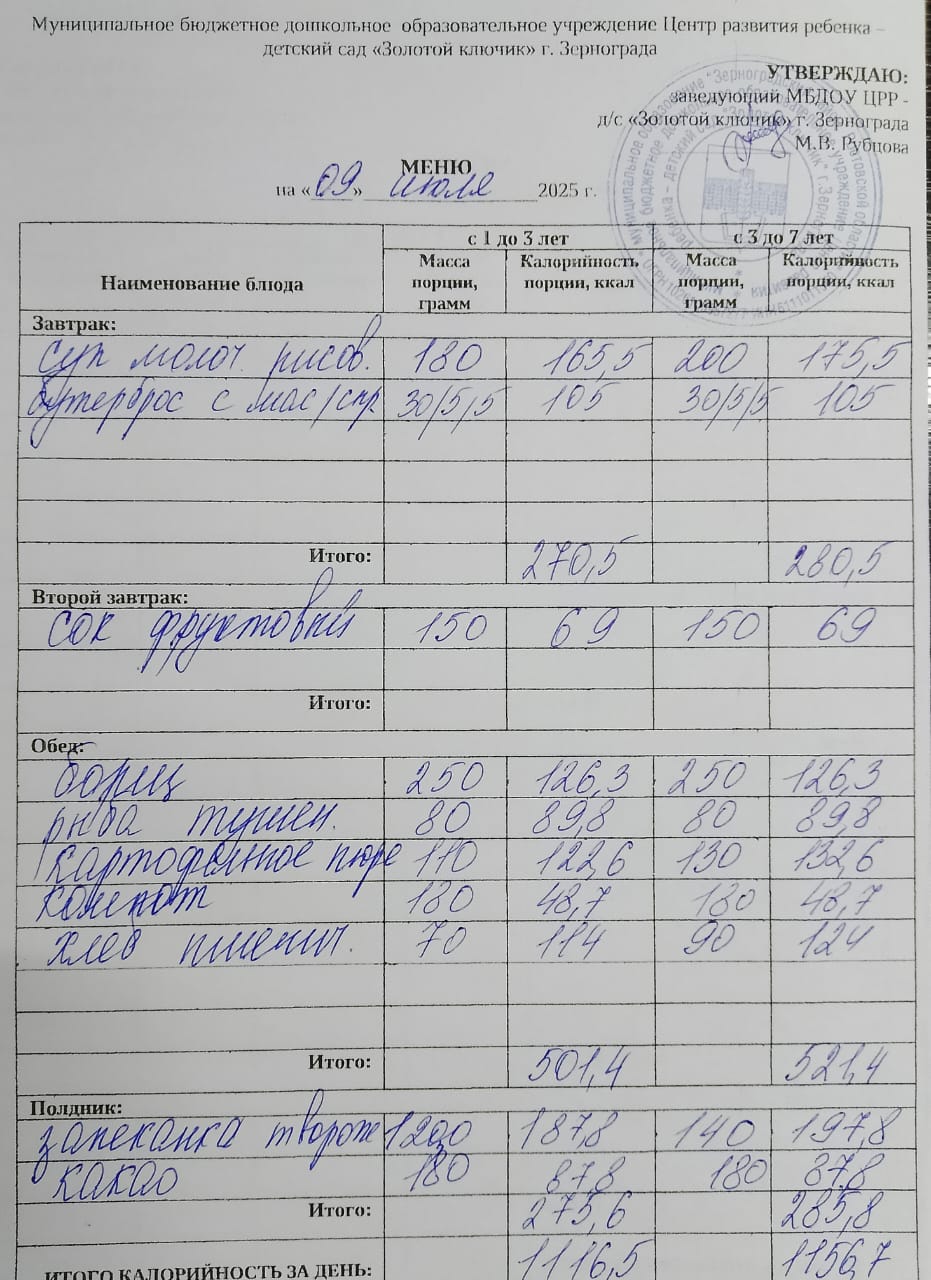 Муниципальное бюджетное дошкольное образовательное учреждение Центр развития ребенка –
детский сад «Золотой ключик» г. Зернограда
УТВЕРЖДАЮ:
заведующий МБДОУ ЦРР -
д/с «Золотой ключик» г. Зернограда
М.В. Рубцова
МЕНЮ
на «09» июля 2025 г.
Наименование блюда с 1 до 3 лет с 3 до 7 лет
Масса порции, грамм Калорийность порции, ккал Масса порции, грамм Калорийность порции, ккал
Завтрак:
Суп молоч. рисов. 180 165,5 200 175,5
бутерброс с мас/сыр 30/5/5 105 30/5/5 105
Итого: 270,5 280,5
Второй завтрак:
сок фруктовый 150 69 150 69
Итого:
Обед:
борщ 250 126,3 250 126,3
рыба тушен. 80 89,8 80 89,8
картофельное пюре 110 122,6 130 132,6
компот 180 48,7 180 48,7
хлеб пшенич. 70 114 90 124
Итого: 501,4 521,4
Полдник:
запеканка творож 120 187,8 140 197,8
какао 180 87,8 180 87,8
Итого: 275,6 285,8
ИТОГО КАЛОРИЙНОСТЬ ЗА ДЕНЬ: 1116,5 1156,7